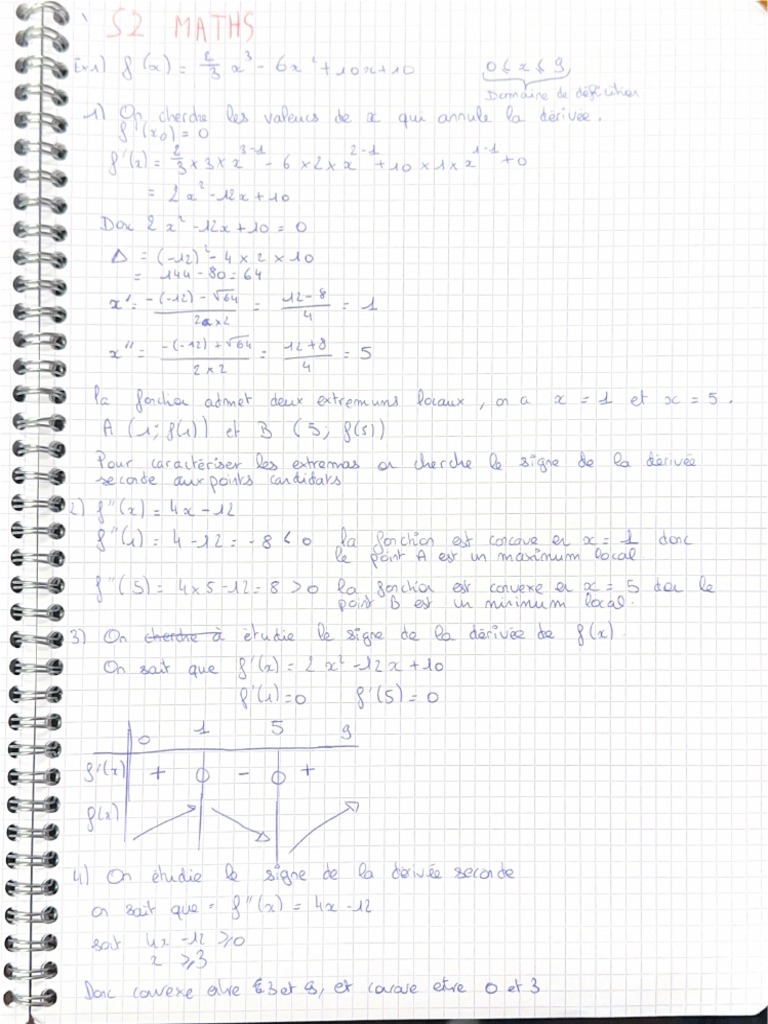 S2 MATHS
Ex1) f(x) = 2/3 x³ - 6x² + 10x + 10     0 ≤ x ≤ 9
Domaine de définition
1) On cherche les valeurs de x qui annule la dérivée.
f'(x₀) = 0
f'(x) = 2/3 × 3 × x³⁻¹ - 6 × 2 × x²⁻¹ + 10 × 1 × x¹⁻¹ + 0
= 2x² - 12x + 10
Donc 2x² - 12x + 10 = 0
Δ = (-12)² - 4 × 2 × 10
= 144 - 80 = 64
x' = (-(-12) - √64) / (2 × 2) = (12 - 8) / 4 = 1
x'' = (-(-12) + √64) / (2 × 2) = (12 + 8) / 4 = 5
la fonction admet deux extremums locaux, on a x = 1 et x = 5.
A (1 ; f(1)) et B (5 ; f(5))
Pour caractériser les extremas on cherche le signe de la dérivée
seconde aux points candidats
2) f''(x) = 4x - 12
f''(1) = 4 - 12 = -8 < 0 la fonction est concave en x = 1 donc
le point A est un maximum local
f''(5) = 4 × 5 - 12 = 8 > 0 la fonction est convexe en x = 5 donc le
point B est un minimum local.
3) On cherche à étudie le signe de la dérivée de f(x).
On sait que f'(x) = 2x² - 12x + 10
f'(1) = 0     f'(5) = 0
0 1 5 9
f'(x) + 0 - 0 +
f(x)
4) On étudie le signe de la dérivée seconde
on sait que = f''(x) = 4x - 12
soit 4x - 12 ≥ 0
x ≥ 3
Donc convexe entre 3 et 9, et concave entre 0 et 3